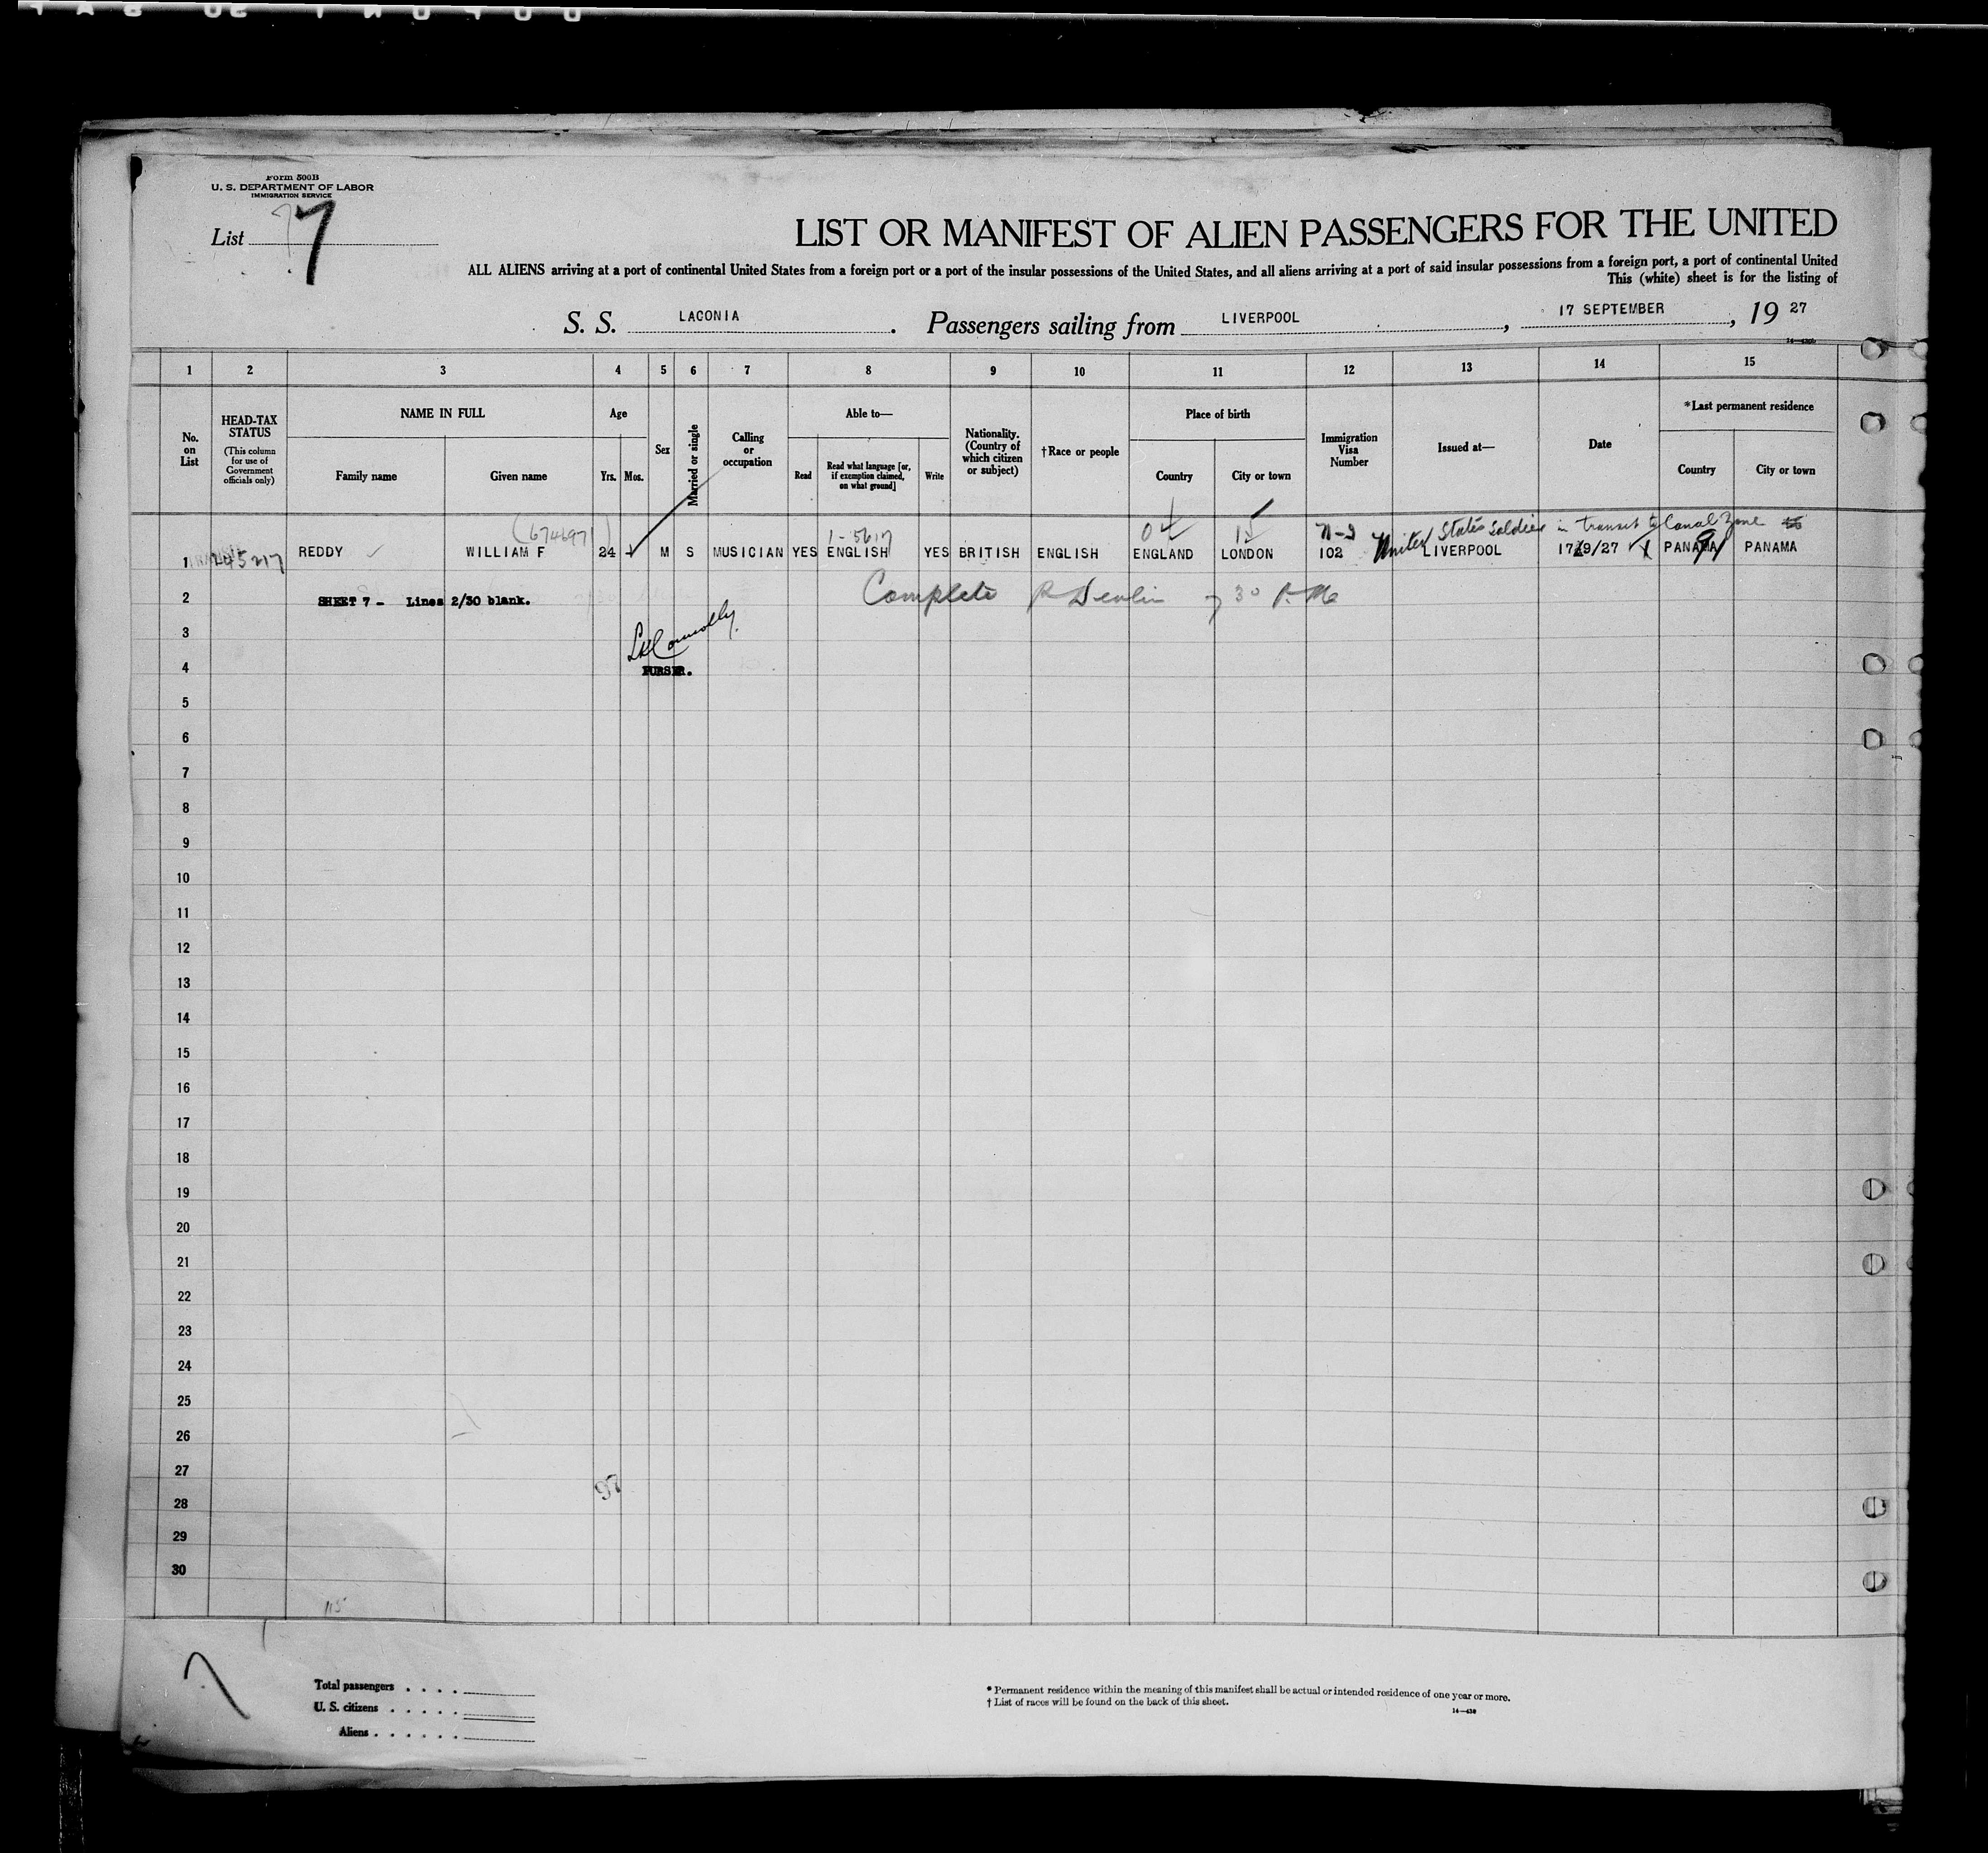 Form 500B
U. S. DEPARTMENT OF LABOR
IMMIGRATION SERVICE
List 7
LIST OR MANIFEST OF ALIEN PASSENGERS FOR THE UNITED
ALL ALIENS arriving at a port of continental United States from a foreign port or a port of the insular possessions of the United States, and all aliens arriving at a port of said insular possessions from a foreign port, a port of continental United
This (white) sheet is for the listing of
S. S. LACONIA. Passengers sailing from LIVERPOOL, 17 SEPTEMBER, 19 27
1 2 3 4 5 6 7 8 9 10 11 12 13 14 15
No. on List
HEAD-TAX STATUS
(This column for use of Government officials only)
NAME IN FULL
Family name Given name
Age
Yrs. Mos.
Sex
Married or single
Calling or occupation
Able to—
Read
Read what language [or, if exemption claimed, on what ground]
Write
Nationality. (Country of which citizen or subject)
†Race or people
Place of birth
Country City or town
Immigration Visa Number
Issued at—
Date
*Last permanent residence
Country City or town
(674697)
United States Soldier in transit to Canal Zone
1 REDDY WILLIAM F 24 M S MUSICIAN YES ENGLISH YES BRITISH ENGLISH ENGLAND LONDON 102 LIVERPOOL 17/9/27 PANAMA PANAMA
2 SHEET 7 - Lines 2/30 blank. Complete 7 30 P.M.
3
4 PURSER.
5
6
7
8
9
10
11
12
13
14
15
16
17
18
19
20
21
22
23
24
25
26
27
28
29
30
97
115
7
Total passengers
U. S. citizens
Aliens
* Permanent residence within the meaning of this manifest shall be actual or intended residence of one year or more.
† List of races will be found on the back of this sheet.